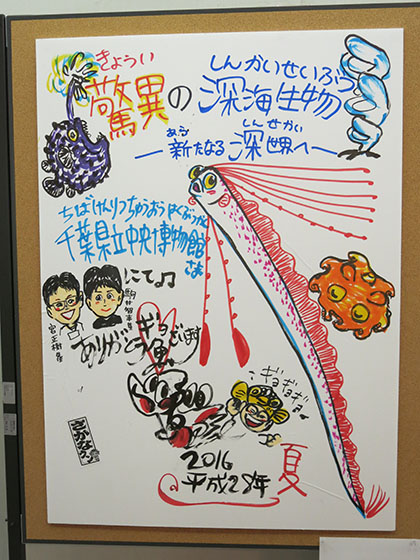 きょうい
驚異の
しんかいせいぶつ
深海生物
あら しんせかい
―新たなる深世界へ―
ちばけんりつちゅうおうはくぶつかん
千葉県立中央博物館
さま
にて♫
宮正樹さん
駒井智幸さん
ありがとギョ
ざいます
ギョギョギョ
さかなクン
2016
平成28年
夏